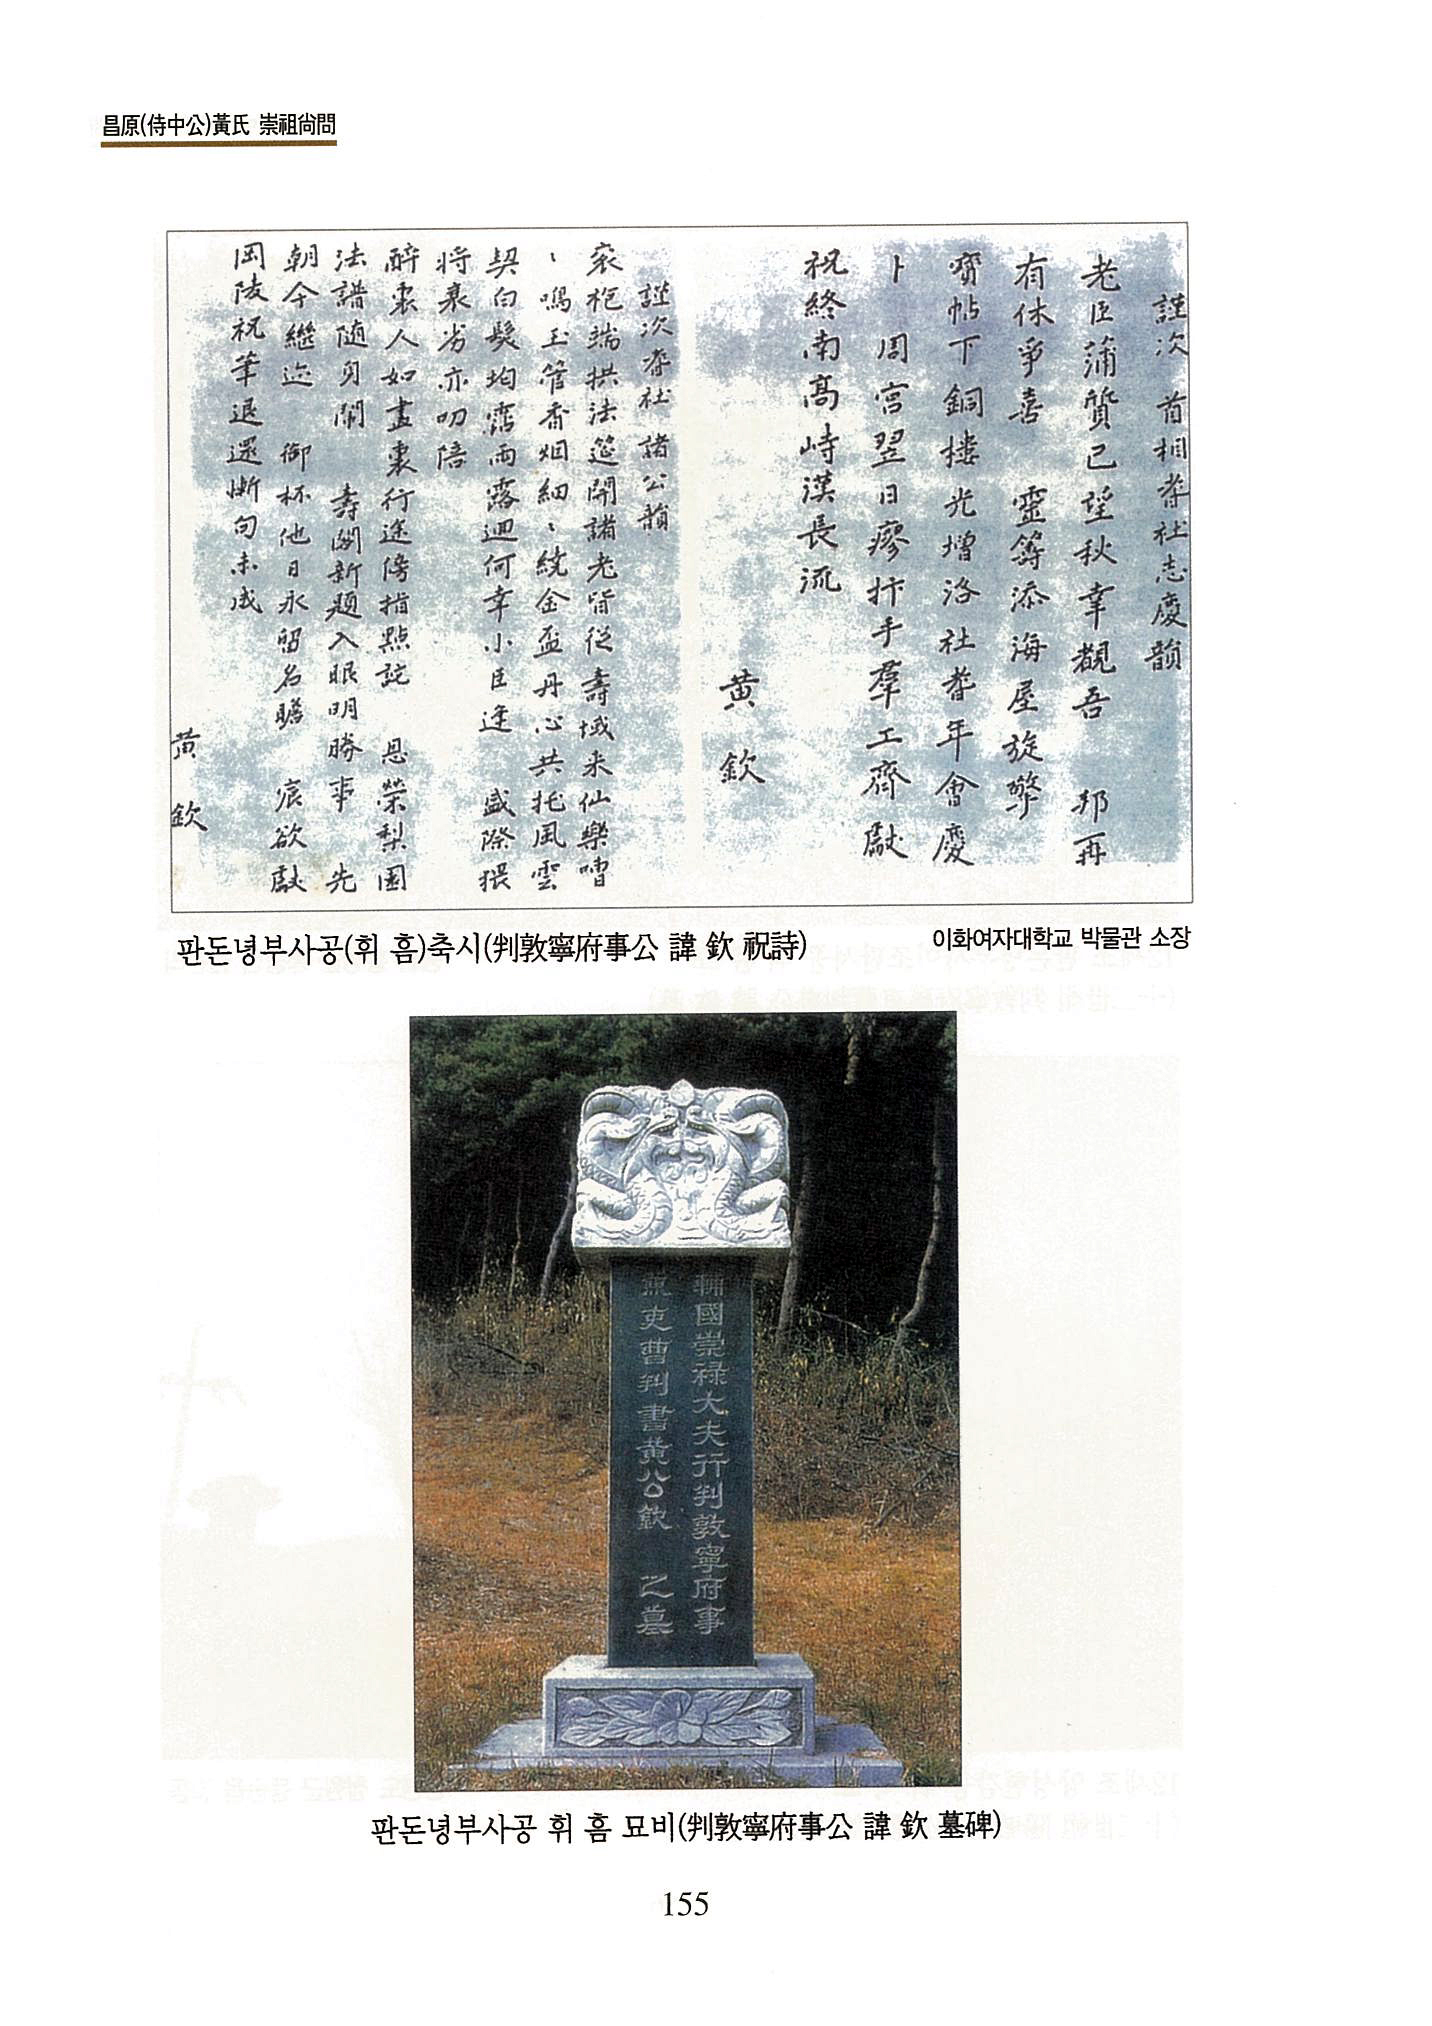 昌原(侍中公)黃氏 崇祖尙問
謹次 首相耆社志慶韻
老臣蒲質已望秋幸觀吾 邦再
有休爭喜 靈籌添海屋旋擎
寶帖下銅樓光增洛社耆年會慶
卜 周宮翌日瘳抃手羣工齊獻
祝終南高峙漢長流
黃 欽
謹次耆社諸公韻
袞袍端拱法筵開諸老皆從壽域来仙樂嘈
〻鳴玉管香烟細〻繞金盃丹心共托風雲
契白髮均霑雨露廻何幸小臣逢 盛際猥
將衰劣亦叨陪
醉裏人如畫裏行途傍指點詫 恩榮梨園
法譜随身閙 壽閣新題入眼明勝事 先
朝今繼迹 御杯他日永留名瞻 宸欲獻
岡陵祝筆退還慚句未成
黃 欽
판돈녕부사공(휘 흠)축시(判敦寧府事公 諱 欽 祝詩)
이화여자대학교 박물관 소장
輔國崇祿大夫行判敦寧府事
兼吏曹判書黃公欽 之墓
판돈녕부사공 휘 흠 묘비(判敦寧府事公 諱 欽 墓碑)
155